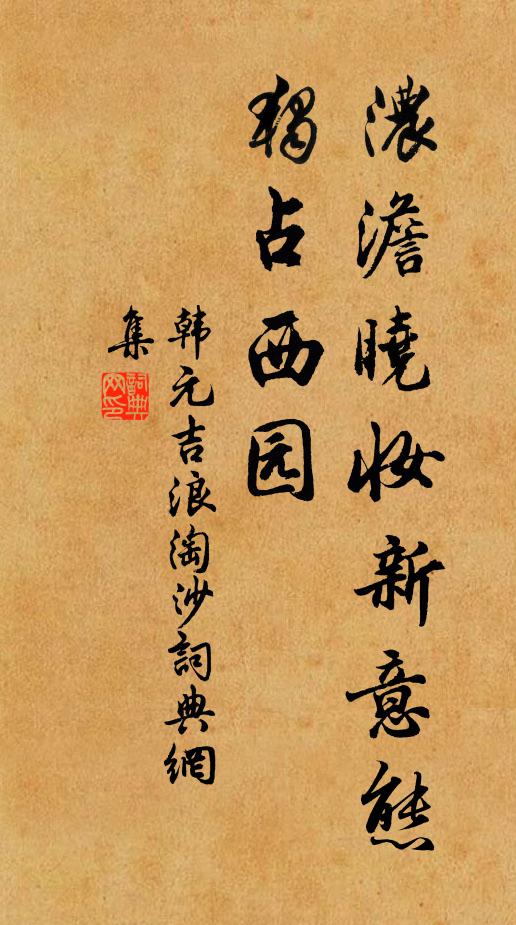 濃澹曉妆新意態
獨占西园
韩元吉浪淘沙詞典網
集
詞典
网印